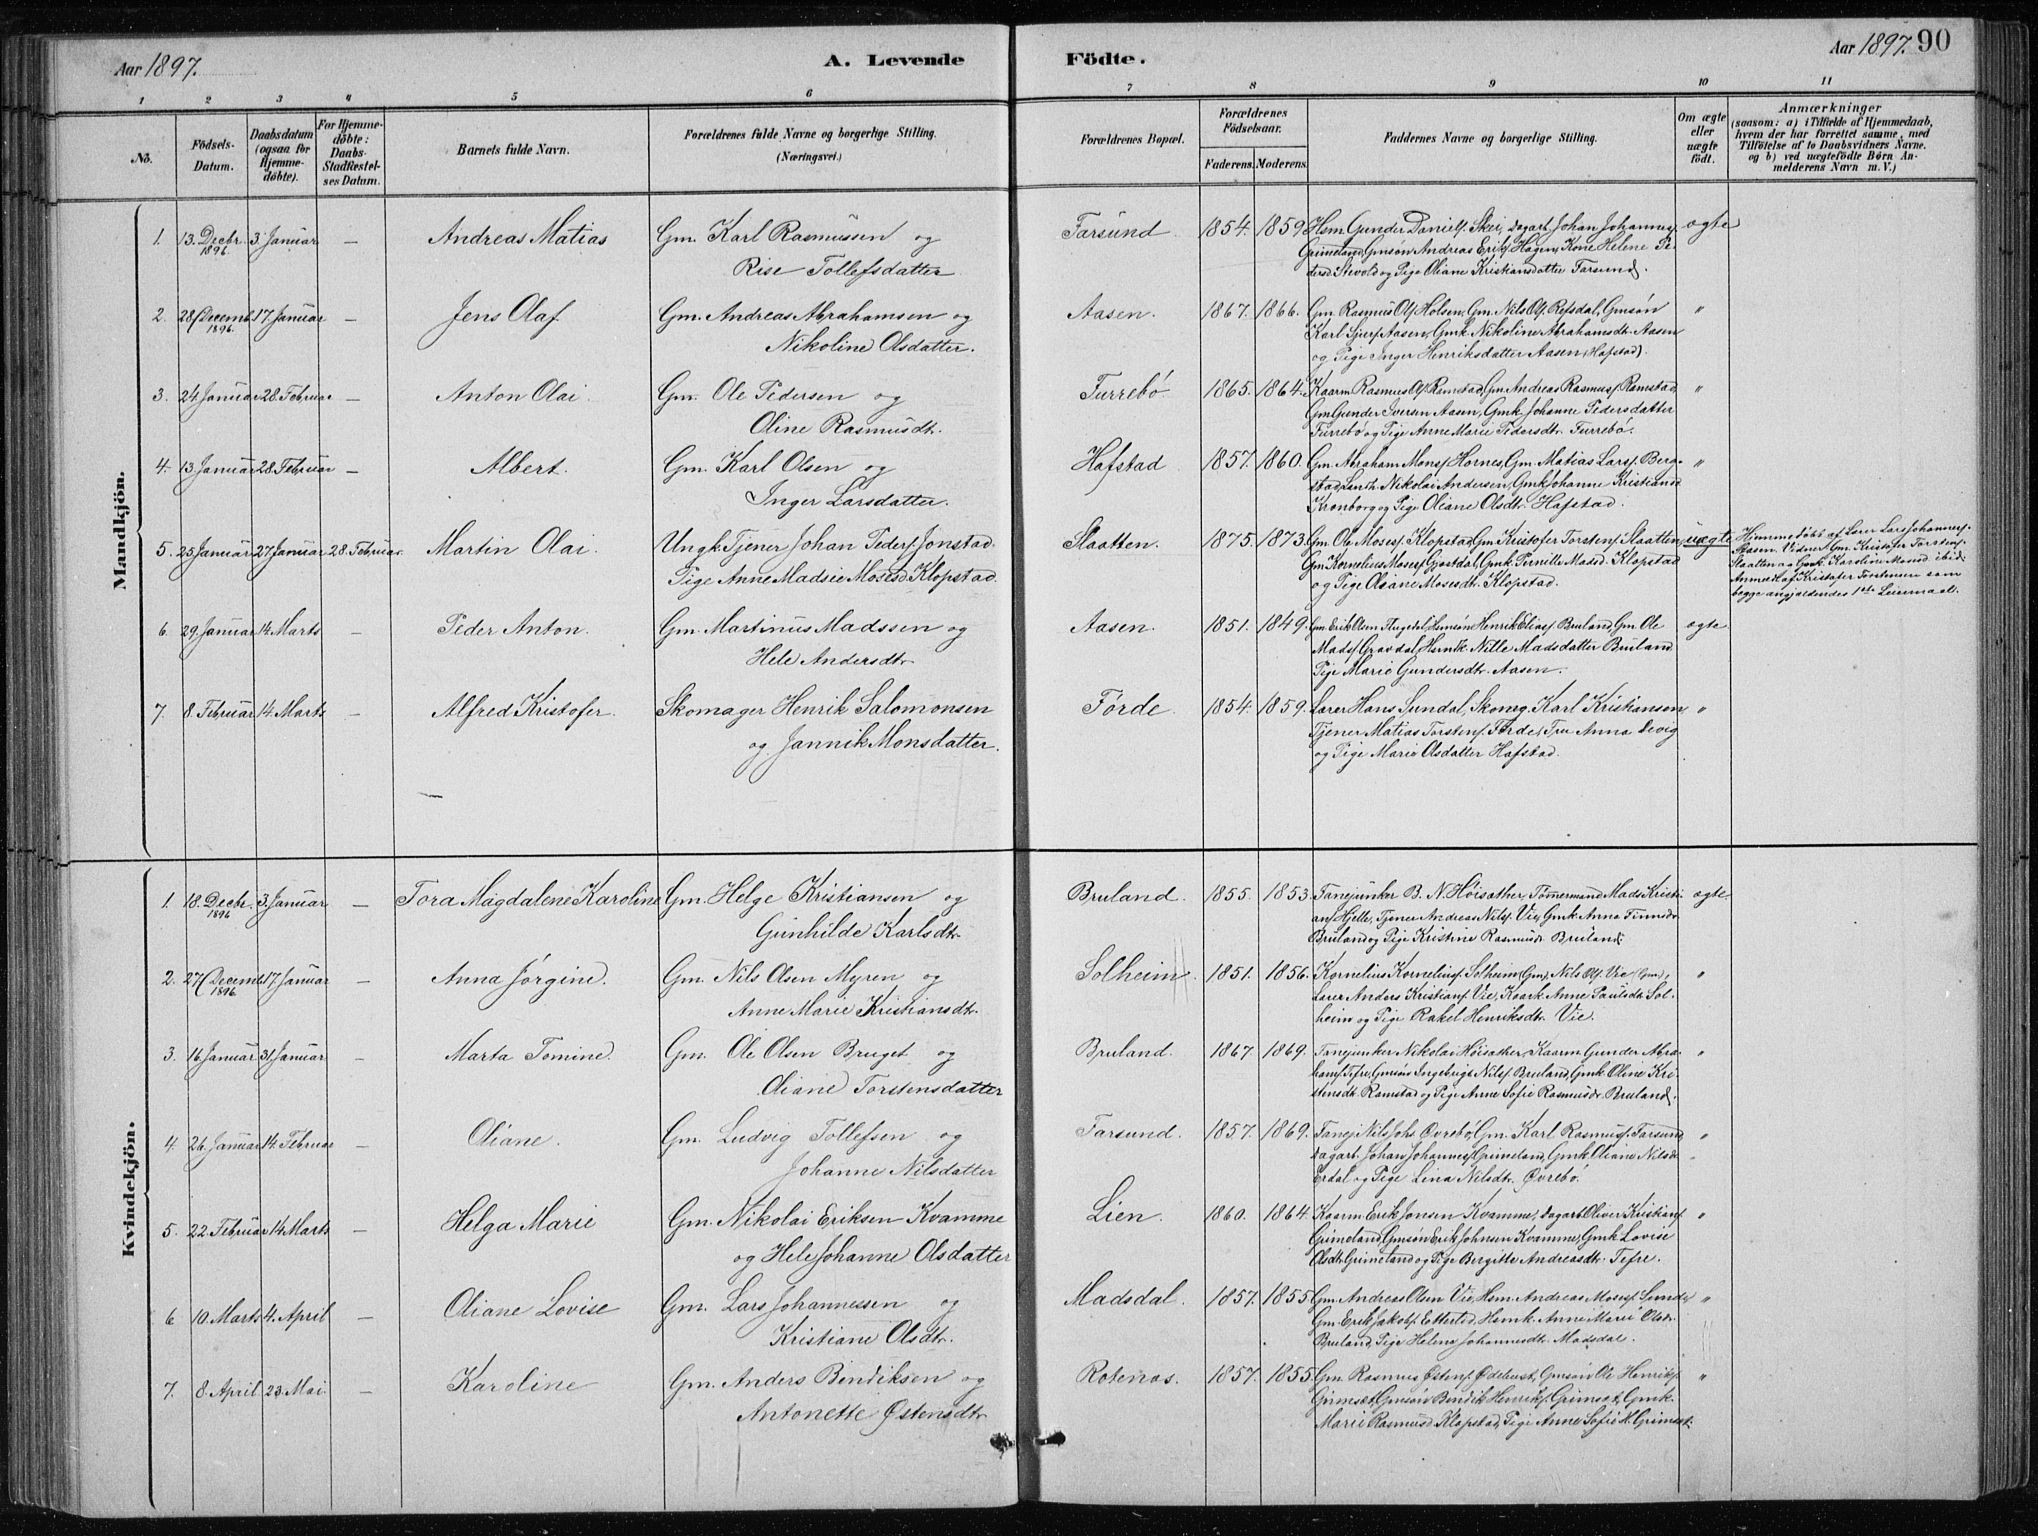 Aar 1897.
A. Levende
Födte.
Aar 1897. 90
1 2 3 4 5 6 7 8 9 10 11
No.
Födsels-
Datum.
Daabsdatum
(ogsaa for
Hjemme-
döbte).
For Hjemme-
döbte:
Daabs-
Stadfæstel-
ses Datum.
Barnets fulde Navn.
Forældrenes fulde Navne og borgerlige Stilling.
(Næringsvei.)
Forældrenes Bopæl.
Forældrenes
Födselsaar.
Faderens. Moderens.
Faddernes Navne og borgerlige Stilling.
Om ægte
eller
uægte
födt.
Anmærkninger
(saasom: a) i Tilfælde af Hjemmedaab,
hvem der har forrettet samme, med
Tilföielse af to Daabsvidners Navne.
og b) ved uægtefödte Börn An-
melderens Navn m. V.)
Mandkjön.
1. 13. Decbr. 1896. 3. Januar — Andreas Matias Gm. Karl Rasmussen og
Rise Tollefsdatter
Farsund 1854. 1859. Hsm Gunder Danielsf. Skei, Dagarb. Johan Johannesf.
Grimeland, Gmsøn Andreas Eriks. Hagen, Kone Helene Pe-
dersd. Stevold og Pige Oliane Kristiansdatter Farsund.
ægte
2. 28/Decemb. 1896. 17. Januar — Jens Olaf. Gm. Andreas Abrahamsen og
Nikoline Olsdatter.
Aasen. 1867. 1866. Gm. Rasmus Ols. Holsen, Gm. Nils Ols. Refsdal, Gmsøn
Karl Sjurs. Aasen, Gmk. Nikoline Abrahamsdr. Aasen
og Pige Inger Henriksdatter Aasen (Hafstad).
"
3. 24. Januar 28. Februar — Anton Olai. Gm. Ole Pedersen og
Oline Rasmusdt.
Furrebø 1865. 1864. Kaarm. Rasmus Ols. Ramstad, Gm Andreas Rasmusf. Ramstad,
Gm Gunder Iversen Aasen, Gmk Johanne Pedersdatter
Furrebø og Pige Anne Marie Pedersdtr. Furrebø.
"
4. 13. Januar 28. Februar — Albert. Gm. Karl Olsen og
Inger Larsdatter.
Hafstad 1857. 1860. Gm. Abraham Monsf. Hornes, Gm. Matias Larsf. Berg-
stad, Nikolai Andersen, Gmk Johanne Kristiansd.
Kronborg og Pige Oliane Olsdtr. Hafstad.
"
5. 25. Januar 27. Januar 28. Februar. Martin Olai. Ungk. Tjener Johan Pedersf. Jonstad.
Pige Anne Madsie Mosesd. Klopstad.
Slaatten. 1875. 1873. Gm. Ole Mosesf. Klopstad, Gm Kristofer Torstensf. Slaatten,
Gm Kornelius Mosesf. Gjesdal, Gmk. Pernille Madsd. Klopstad
og Pige Oliane Mosesdtr. Klopstad.
uægte
Hjemmedøbt af Lærer Lars Johannesf.
Aasen. Vidner, Gm. Kristofer Torstens.
Slaatten og Gmk. Karoline Monsd. ibid.
Anmeldt af Kristofer Torstensen som
begge angjældendes 1ste Leiermaal.
6. 29. Januar 14. Marts — Peder Anton. Gm. Martinus Madssen og
Hele Andersdtr
Aasen. 1851. 1849. Gm. Erik Olsen Flugedal, Hsmsøn Henrik Eliasf. Bruland, Gm. Ole
Madsf. Gravdal, Hsmk. Nille Madsdatter Bruland
Pige Marie Gundersdtr. Aasen.
ægte
7. 8. Februar 14. Marts — Alfred Kristofer. Skomager Henrik Salomonsen
og Jannik Monsdatter.
Førde. 1854. 1859. Lærer Hans Sundal, Skomg. Karl Kristiansen,
Tjener Matias Torstensf. Førde, Fru Anna Devig
og Pige Marie Olsdatter Hafstad.
"
Kvindekjön.
1. 18. Decbr. 1896. 3. Januar — Tora Magdalene Karoline Gm. Helge Kristiansen og
Gunhilde Karlsdtr.
Bruland. 1855. 1853. Fanejunker B. N. Høisæther, Tømmermand Mads Kristi-
ansf Hjelle, Tjener Andreas Nilsf. Vie, Gmk. Anna Finnsdr.
Bruland og Pige Kristine Rasmusdr. Bruland.
ægte.
2. 27/Decemb. 1896. 17. Januar — Anna Jørgine. Gm. Nils Olsen Myren og
Anne Marie Kristiansdtr.
Solheim 1851. 1856. Kornelius Korneliusf. Solheim, (Gm), Nils Olsf. Vie (Gm.),
Lærer Anders Kristiansf. Vie, Kaark. Anne Paulsdtr. Sol-
heim og Pige Rakel Henriksdtr. Vie.
"
3. 16. Januar 31. Januar — Marta Tomine. Gm. Ole Olsen Bruget og
Oliane Torstensdatter
Bruland. 1867 1869. Fanejunker Nikolai Høisæther, Kaarm. Gunder Abra-
hamsf. Tefre, Gmsøn Ingebrigt Nilsf. Bruland, Gmk. Oline Kri-
stensdtr. Ramstad og Pige Anne Sofie Rasmusdr. Bruland.
"
4. 26. Januar 14. Februar — Oliane. Gm. Ludvig Tollefsen og
Johanne Nilsdatter
Farsund. 1857. 1869. Fanej. Nils Johs. Øvrebø, Gm. Karl Rasmusf. Farsund,
Dagarb. Johan Johannesf. Grimeland, Gmk Oliane Nilsdr.
Erdal og Pige Lina Nilsdtr. Øvrebø.
"
5. 22. Februar 14. Marts — Helga Marie Gm. Nikolai Eriksen Kvamme
og Hele Johanne Olsdatter
Lien. 1860. 1864. Kaarm Erik Jonsen Kvamme, Dagarb. Oliver Kristiansf.
Grimeland, Gmsøn Erik Johnsen Kvamme, Gmk Lovise
Olsdtr. Grimeland og Pige Bergitte Andreasdtr. Tefre.
"
6 10. Marts 4. April — Oliane Lovise Gm. Lars Johannessen og
Kristiane Olsdtr.
Madsdal. 1857. 1855. Gm. Andreas Olsen Vie, Hsm. Andreas Mosesf. Sunde,
Gm. Erik Jakobsf. Ettested, Hsmk. Anne Marie Olsdr.
Bruland, Pige Helene Johannesdtr. Madsdal.
"
7. 8. April 23. Mai. — Karoline Gm. Anders Bendiksen og
Antonette Østensdtr.
Rotenæs. 1857. 1855. Gm. Rasmus Østensf. Ødehest, Gmsøn Ole Henriksf.
Grimset, Gmsøn Bendik Henriksf. Grimset, Gmk.
Marie Rasmusd. Klopstad, Pige Anne Sofie H. Grimset.
"